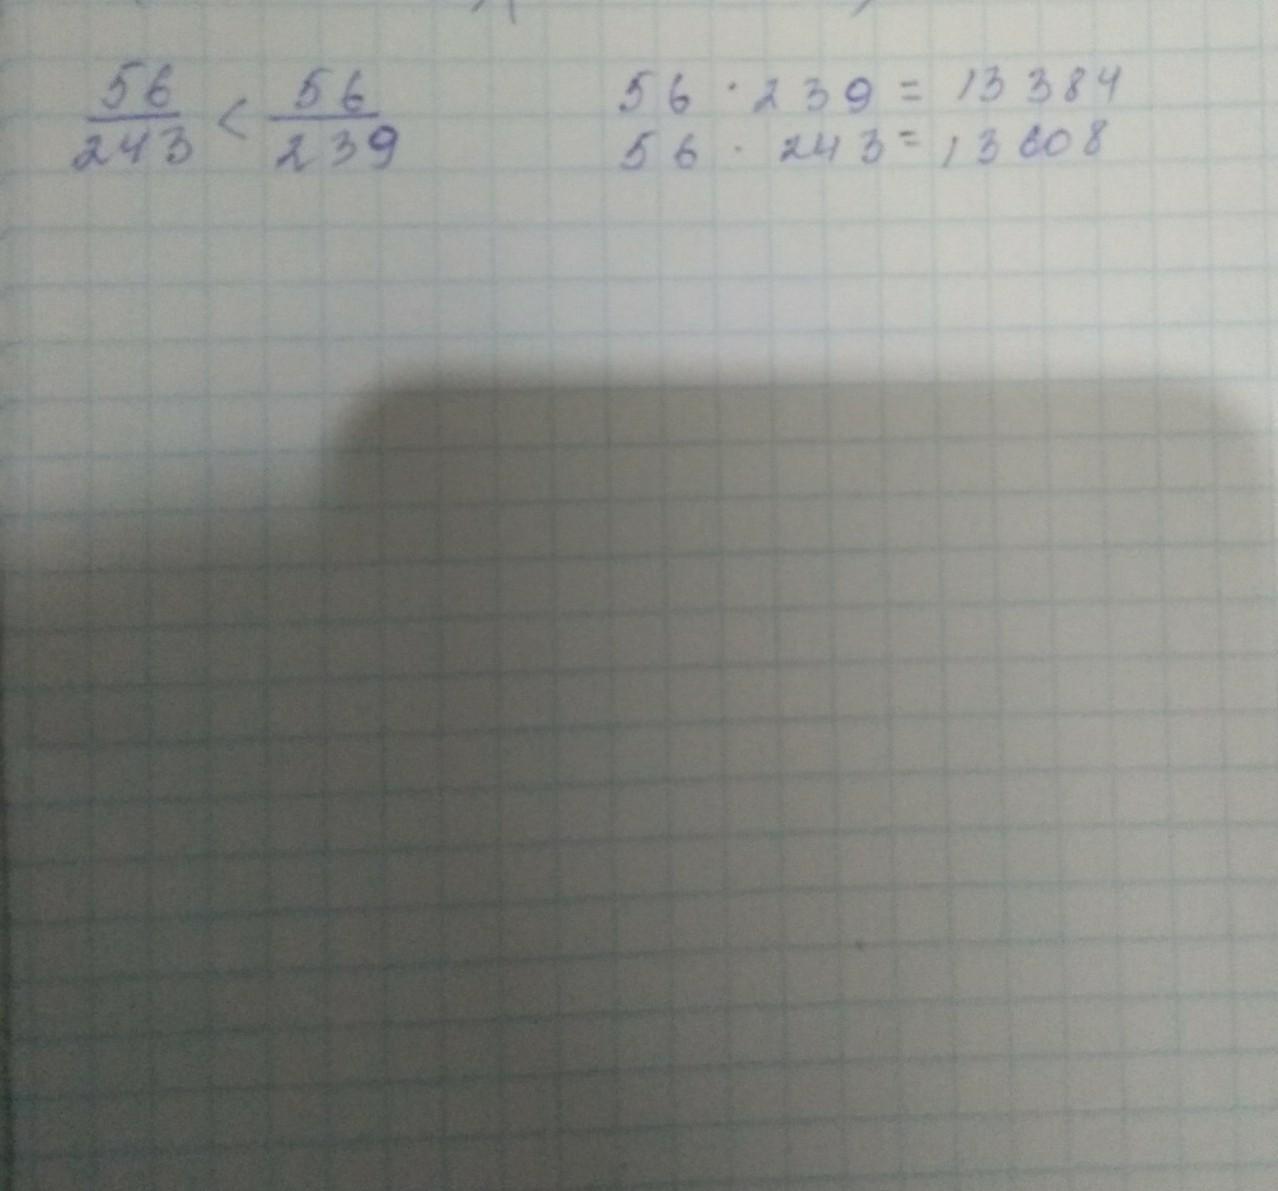 56/243 < 56/239
56 · 239 = 13 384
56 · 243 = 13 608